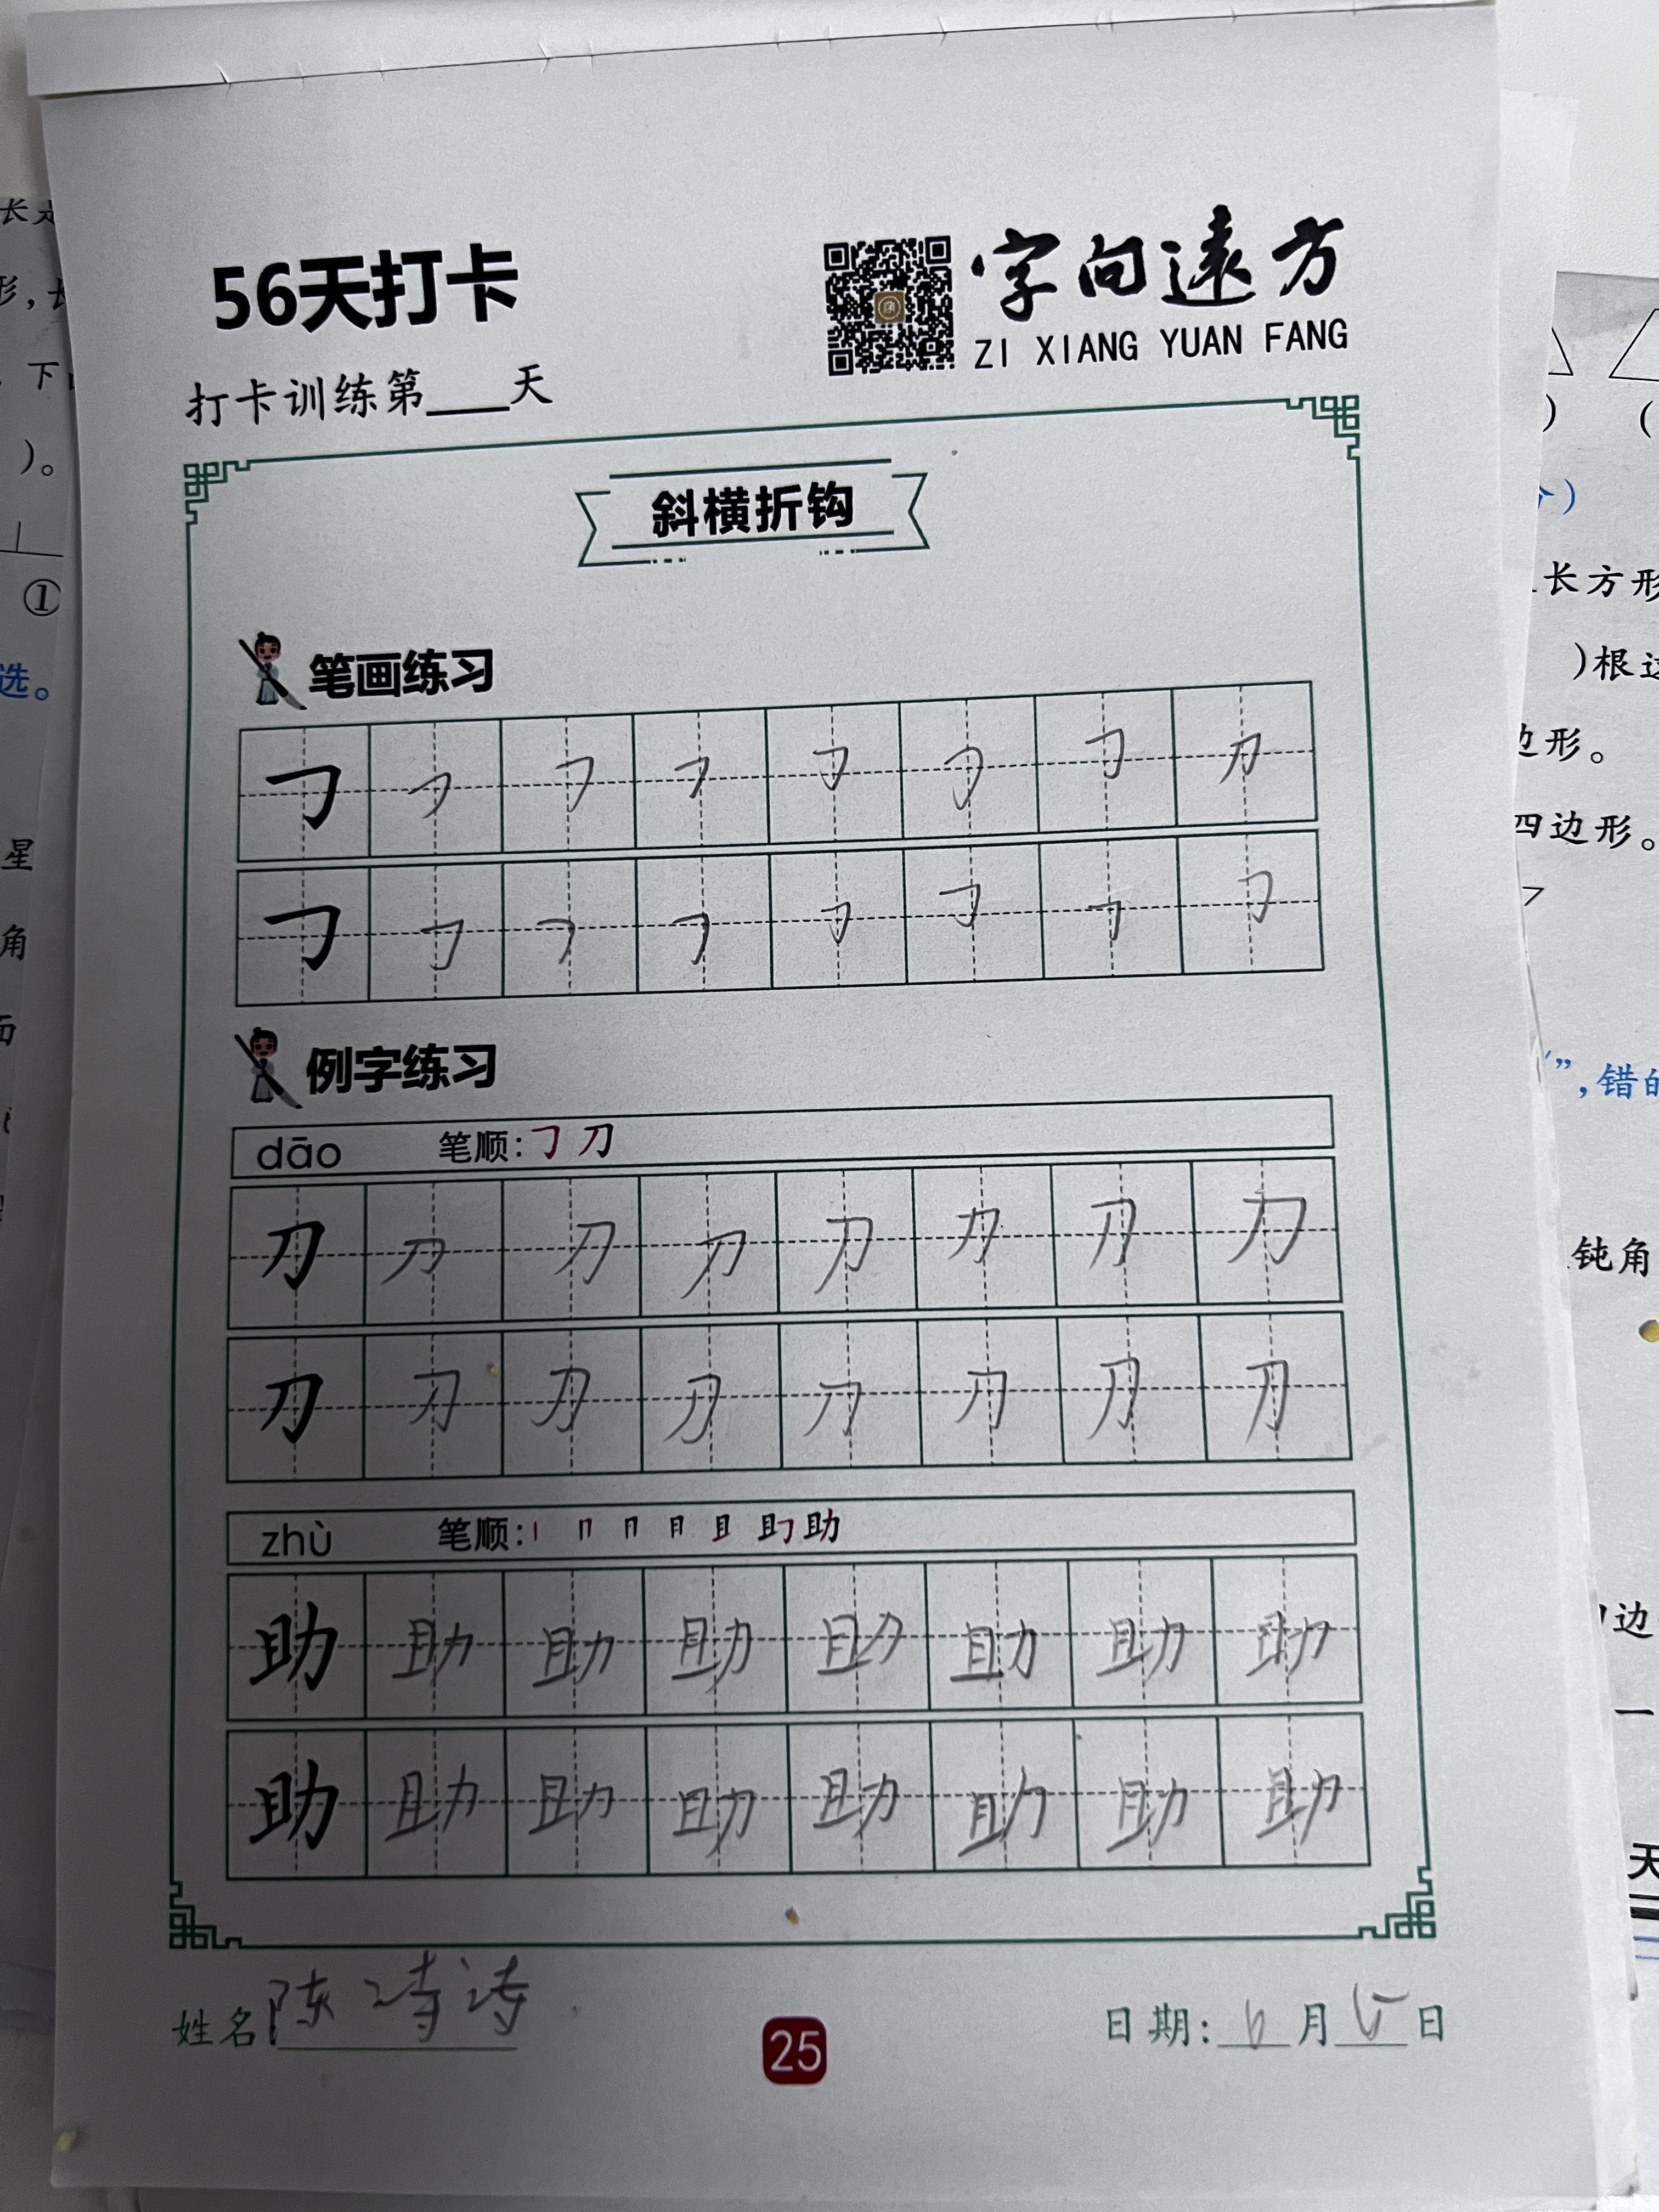 56天打卡
字向遠方
ZI XIANG YUAN FANG
打卡训练第____天
斜横折钩
笔画练习
㇆ ㇆ ㇆ ㇆ ㇆ ㇆ ㇆ 刀
㇆ ㇆ ㇆ ㇆ ㇆ ㇆ ㇆ ㇆
例字练习
dāo 笔顺:㇆ 刀
刀 刀 刀 刀 刀 力 刀 力
刀 刀 刀 刀 刀 刀 刀 刀
zhù 笔顺:丨 冂 月 且 助
助 助 助 助 助 助 助 助
助 助 助 助 助 助 助 助
姓名 陈诗诗
25
日期: 6 月 15 日
长
形,
下
)。
①
选。
星
角
面
)
(
个)
长方形
)根
边形。
四边形。
”,错的
钝角
边
一
天